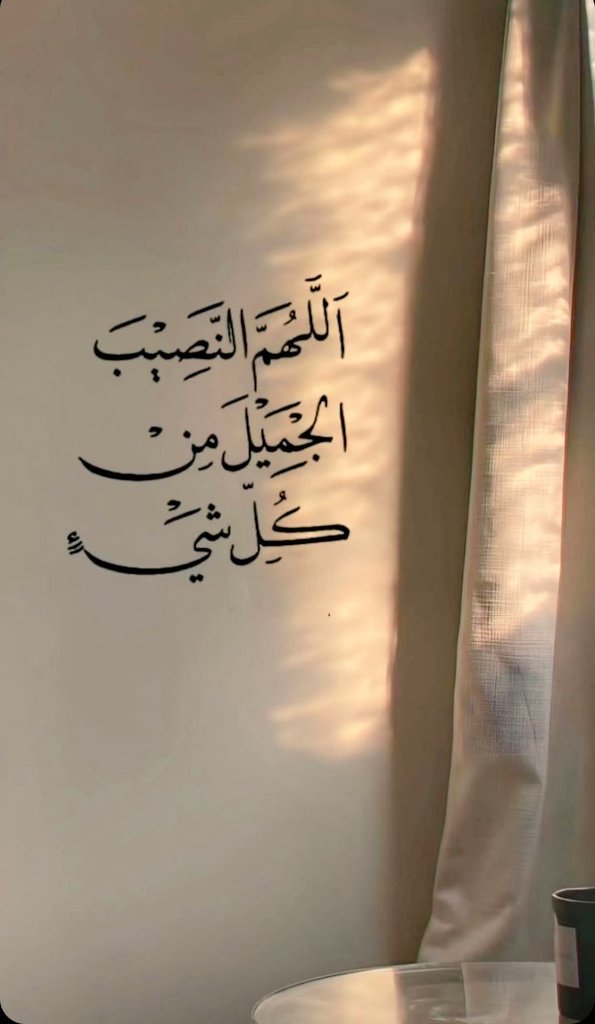 اَللَّهُمَّ النَّصِيْبَ
الجْمَِيْلَ مِنْ
كُلِّ شَيْءٍ